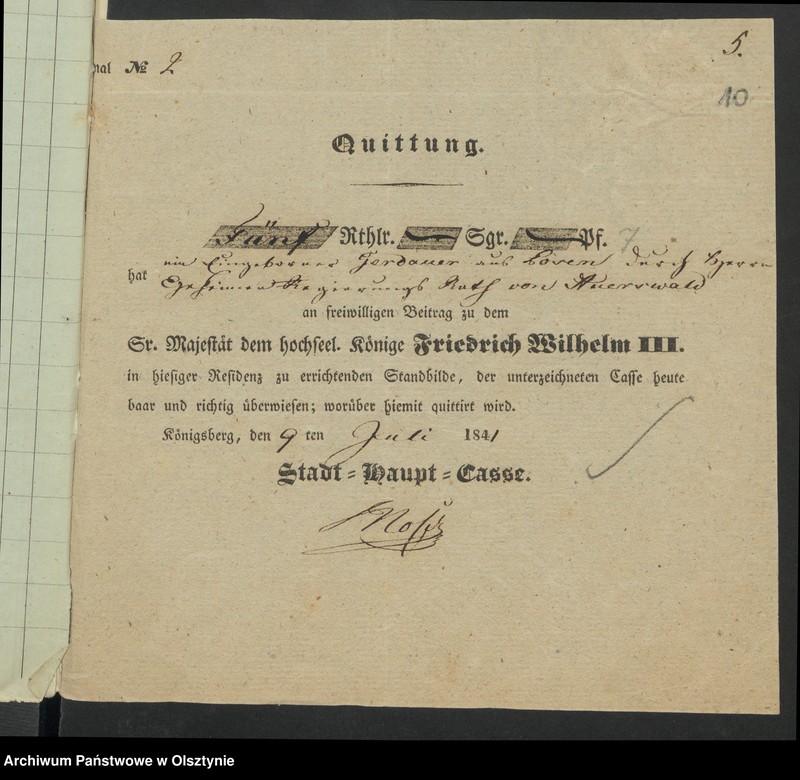 5.
nal № 2
10
Quittung.
Fünf Rthlr. — Sgr. — Pf. 7
ein Eingeborner Gerdauer aus durch Herrn
hat Geheimen Regierungs Rath von Auerswald
an freiwilligen Beitrag zu dem
Sr. Majestät dem hochseel. Könige Friedrich Wilhelm III.
in hiesiger Residenz zu errichtenden Standbilde, der unterzeichneten Casse heute
baar und richtig überwiesen; worüber hiemit quittirt wird.
Königsberg, den 9 ten Juli 1841
Stadt-Haupt-Casse.
Archiwum Państwowe w Olsztynie